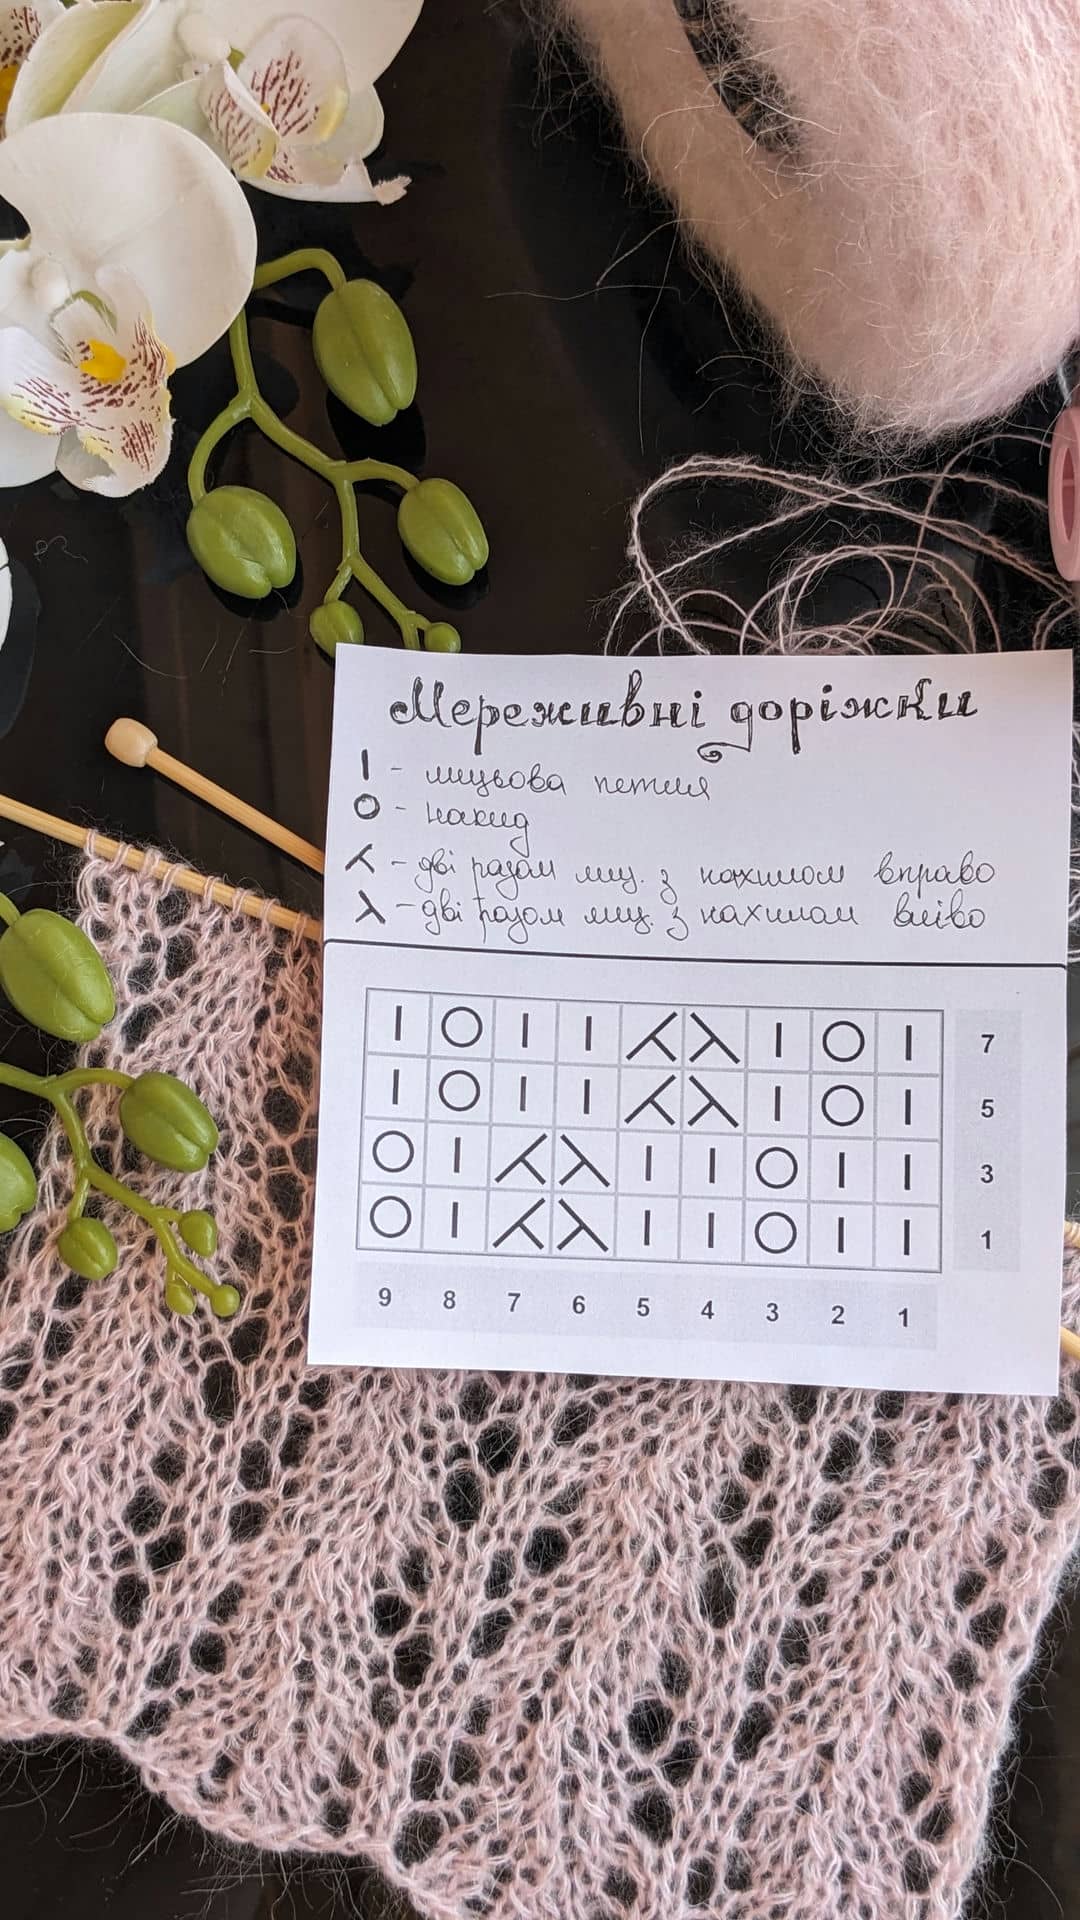 Мереживні доріжки
I - лицьова петля
O - накид
⅄ - дві разом лиц. з нахилом вправо
λ - дві разом лиц. з нахилом вліво
I O I I ⅄ λ I O I 7
I O I I ⅄ λ I O I 5
O I ⅄ λ I I O I I 3
O I ⅄ λ I I O I I 1
9 8 7 6 5 4 3 2 1